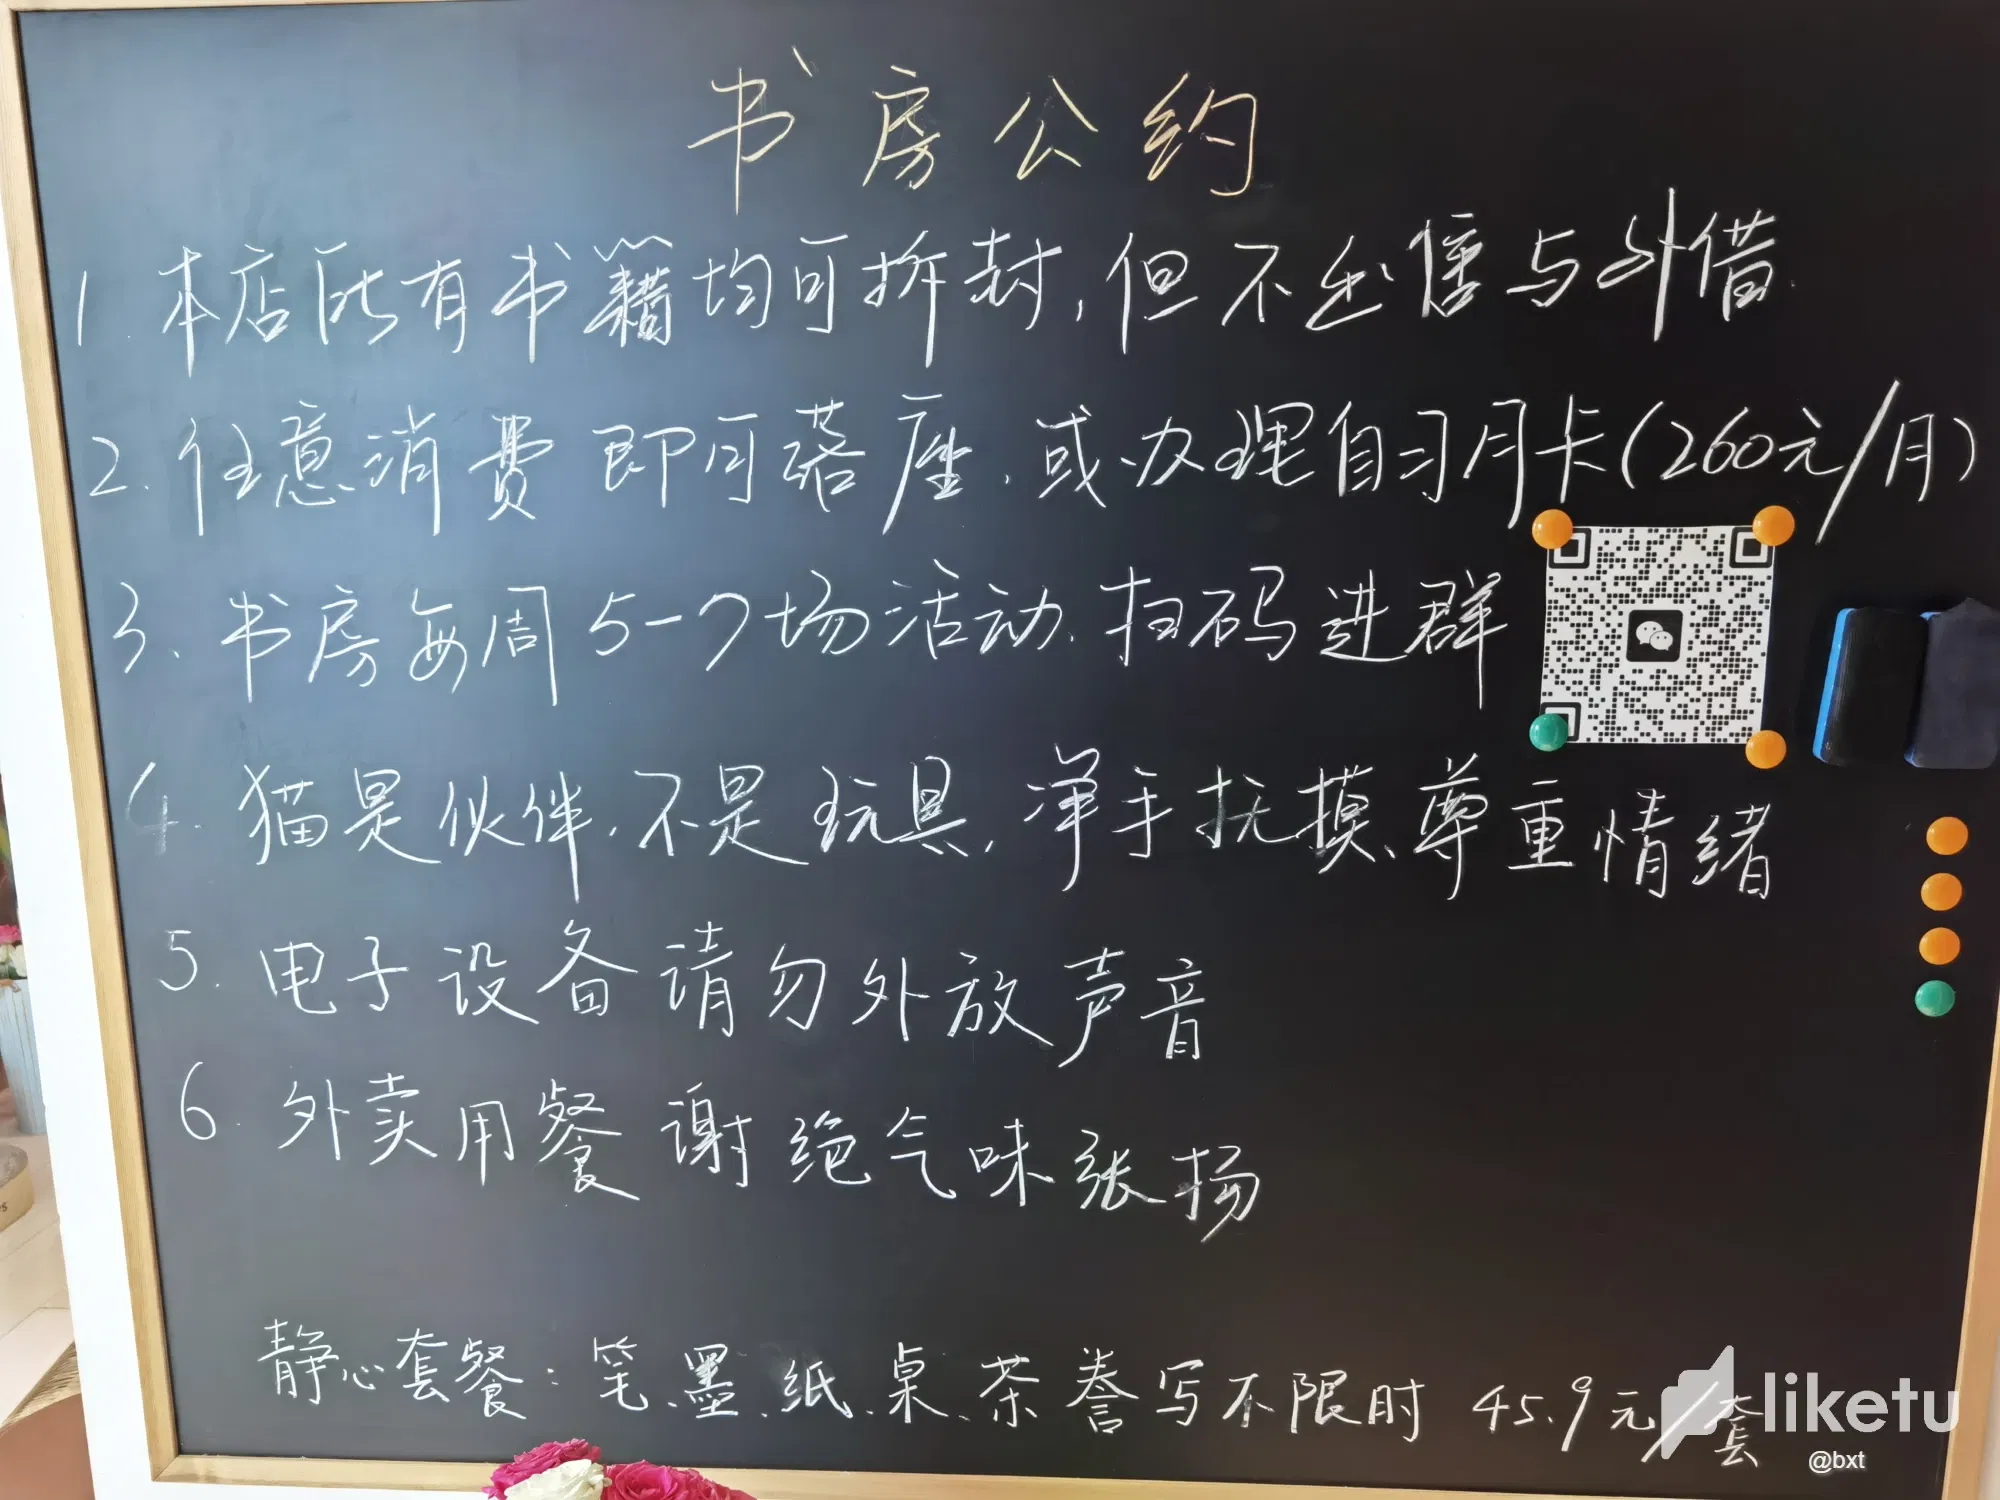 书房公约
1. 本店所有书籍均可拆封,但不出售与外借.
2. 任意消费即可落座.或办理自习月卡(260元/月)
3. 书房每周5-7场活动.扫码进群
4. 猫是伙伴.不是玩具.净手抚摸、尊重情绪
5. 电子设备请勿外放声音
6. 外卖用餐谢绝气味张扬
静心套餐:笔.墨.纸.桌.茶 誊写不限时 45.9元/套
liketu
@bxt